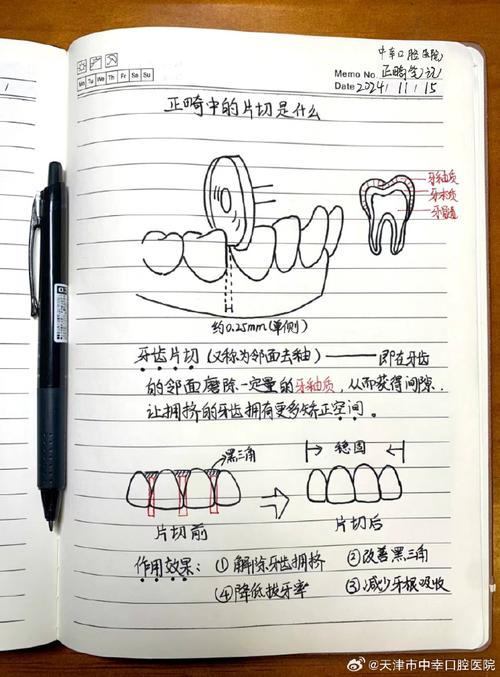 中幸口腔医院
Memo No. 正畸笔记
Mo Tu We Th Fr Sa Su
Date 2024 / 11 / 15
正畸中的片切是什么
牙釉质
牙本质
牙髓
约0.25mm(单侧)
牙齿片切(又称为邻面去釉)——即在牙齿
的邻面磨除一定量的牙釉质,从而获得间隙..
让拥挤的牙齿拥有更多矫正空间。
黑三角
稳固
片切前
片切后
作用效果: ①解除牙齿拥挤 ②改善黑三角
④降低拔牙率 ③减少牙根吸收
@天津市中幸口腔医院